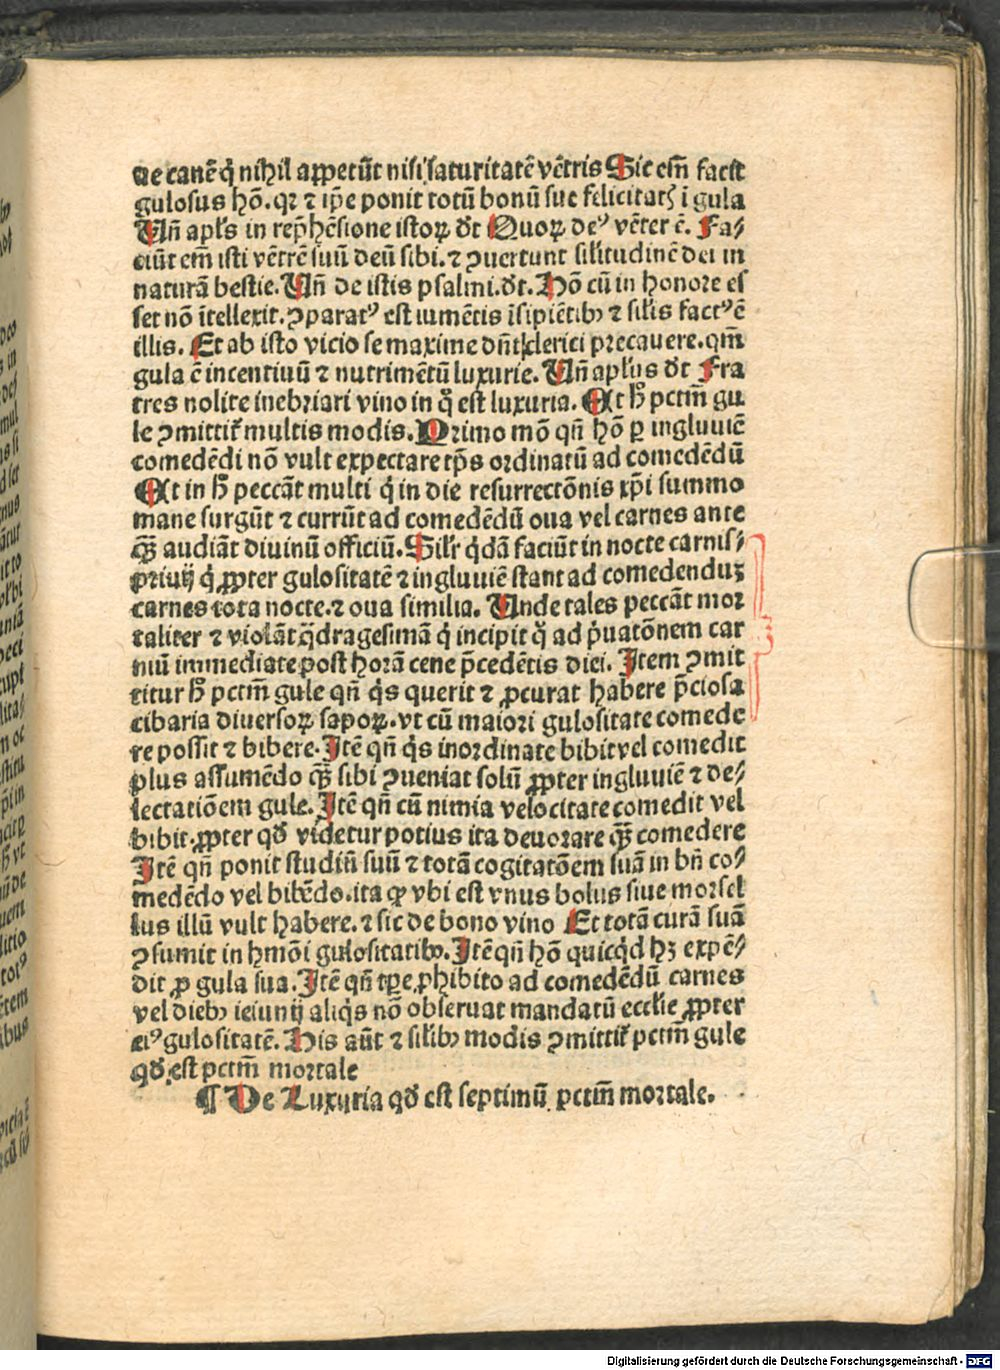 ac canē q̇ nihil appetūt nisi saturitatē vētris Sic em̄ facit
gulosus hō. qꝛ ⁊ ip̄e ponit totū bonū sue felicitatꝭ ī gula
Vn̄ apl's in rep̄hēsione istoꝝ dt̄ Quoꝝ de⁹ vēter ē. Fa⸗
ciūt em̄ isti vētrē suū deū sibi. ⁊ ꝯuertunt silitudinē dei in
naturā bestie. Vn̄ de istis psalmi. dt̄. Hō cū in honore es
set nō ītellexit. ꝯparat⁹ est iumētis īsipiētibꝫ ⁊ sil'is fact⁹ ē
illis. Et ab isto vicio se maxime dn̄t clerici precauere. qm̄
gula ē incentiuū ⁊ nutrimētū luxurie. Vn̄ apl'us dt̄ Fra
tres nolite inebriari vino in q̊ est luxuria. Et h̄ pctm̄ gu
le ꝯmittit᷑ multis modis. Primo mō qn̄ hō ꝑ ingluuiē
comedēdi nō vult expectare tp̄s ordinatū ad comedēdū
Et in h̄ peccāt multi q̇ in die resurrectōnis xp̄i summo
mane surgūt ⁊ currūt ad comedēdū oua vel carnes ante
qꝫ̄ audiāt diuinū officiū. Sil'r q̇dā faciūt in nocte carnis⸗
priuij q̇ ꝓpter gulositatē ⁊ ingluuiē stant ad comedenduꝫ
carnes tota nocte. ⁊ oua similia. Unde tales peccāt mor
taliter ⁊ violāt q̄dragesimā q̇ incipit q̊ ad ṗuatōnem car
niū immediate post horā cene p̄cedētis diei. Item ꝯmit
titur h̄ pctm̄ gule qn̄ q̇s querit ⁊ ꝓcurat habere p̄ciosa
cibaria diuersoꝝ sapoꝝ. vt cū maiori gulositate comede
re possit ⁊ bibere. Itē qn̄ q̇s inordinate bibit vel comedit
plus assumēdo qꝫ̄ sibi ꝯueniat solū ꝓpter ingluuiē ⁊ de⸗
lectatiōem gule. Itē qn̄ cū nimia velocitate comedit vel
bibit. ꝓpter qd̄ videtur potius ita deuorare qꝫ̄ comedere
Itē qn̄ ponit studiū suū ⁊ totā cogitatōem suā in bn̄ co⸗
medēdo vel bibēdo. ita ꝙ vbi est vnus bolus siue morsel
lus illū vult habere. ⁊ sic de bono vino Et totā curā suā
ꝯsumit in hmōi gulositatibꝫ. Itē qn̄ hō quicq̇d hꝫ expē⸗
dit ꝓ gula sua. Itē qn̄ tꝑe ꝓhibito ad comedēdū carnes
vel diebꝫ ieiunij aliq̇s nō obseruat mandatū eccl'ie ꝓpter
ei⁹ gulositatē. His aūt ⁊ sil'ibꝫ modis ꝯmittit᷑ pctm̄ gule
qd̄ est pctm̄ mortale
¶ De Luxuria qd̄ est septimū pctm̄ mortale.
Digitalisierung gefördert durch die Deutsche Forschungsgemeinschaft - DFG